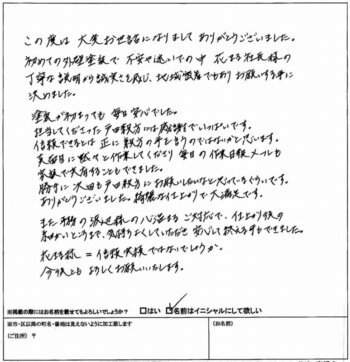 この度は 大変お世話になりまして ありがとうございました。
初めての外壁塗装で 不安や迷いの中 花まる社長様の
丁寧な説明から誠実さを感じ、地域密着でもあり お願いする事に
決めました。
塗装が始まっても 毎日安心でした。
担当してくださった戸田親方には感謝でいっぱいです。
信頼できるとは 正に 親方の事を言うのではないかと思います。
真面目に黙々と作業してくださり 毎日の作業日報メールも
家族で共有することもできました。
勝手に 次回も戸田親方に お願いしたいなと 思っているぐらいです。
ありがとうございました。綺麗な仕上がりで大満足です。
また 事務の 様の心温まるご対応で、仕上がり後の
細かいところまで、気持ちよくしていただき 安心して終える事もできました。
花まる様 = 信頼 様ではないでしょうか。
今後とも よろしくお願いいたします。
※掲載の際にはお名前を載せてもよろしいでしょうか? □はい ☑名前はイニシャルにして欲しい
※市・区以降の町名・番地は見えないように加工致します
(ご住所) 〒
(お名前)